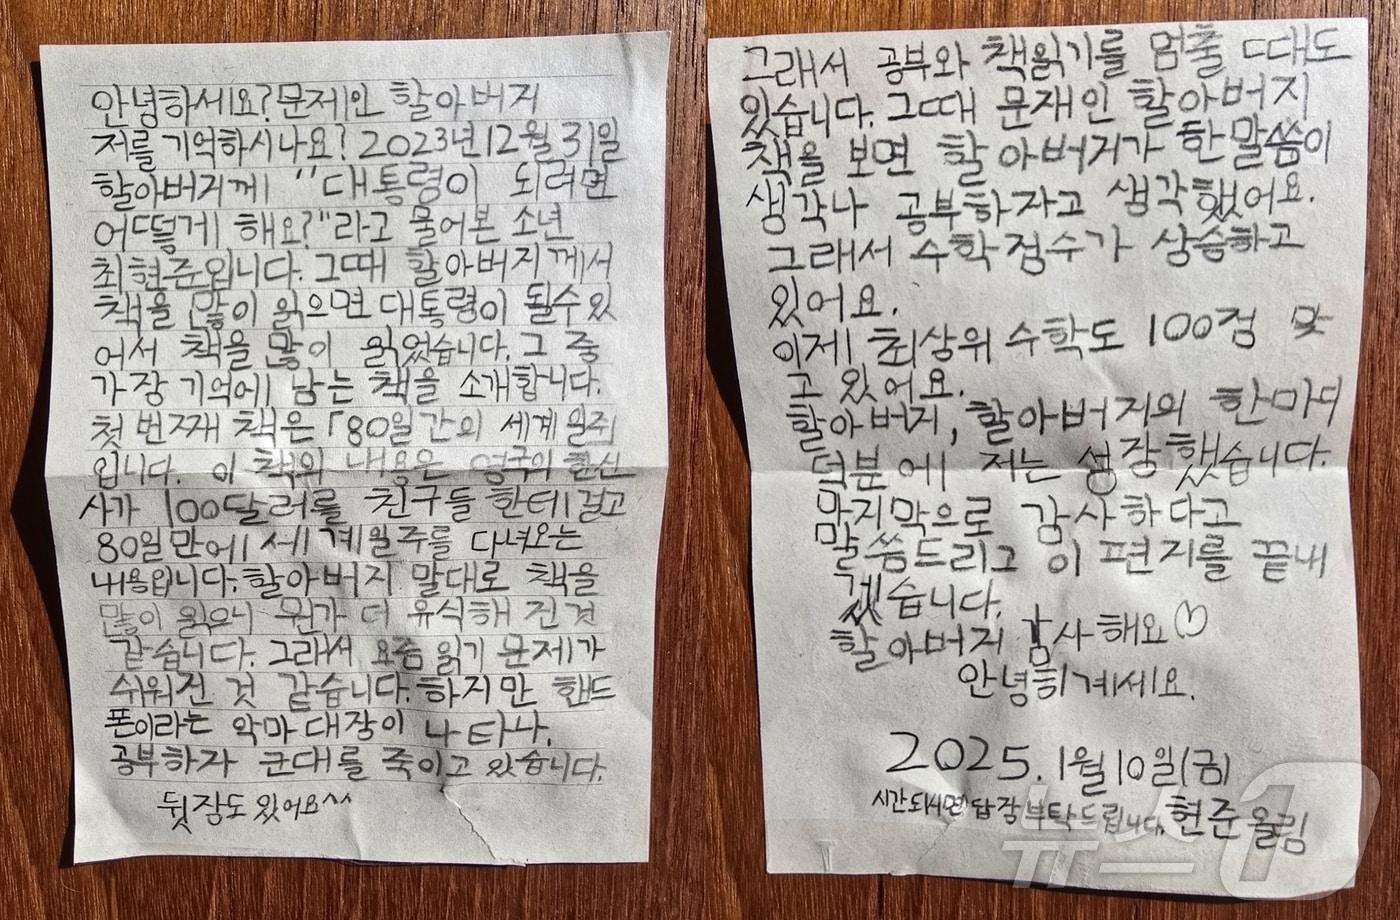 안녕하세요? 문제인 할아버지
저를 기억하시나요? 2023년 12월 31일
할아버지께 "대통령이 되려면
어떻게 해요?"라고 물어본 소년
최현준입니다. 그때 할아버지께서
책을 많이 읽으면 대통령이 될수 있
어서 책을 많이 읽었습니다. 그 중
가장 기억에 남는 책을 소개합니다.
첫 번째 책은 「80일간의 세계 일주
입니다. 이 책의 내용은 영국의 한신
사가 100달러를 친구들 한테 걸고
80일만에 세계 일주를 다녀오는
내용입니다. 할아버지 말대로 책을
많이 읽으니 뭔가 더 유식해 진 것
같습니다. 그래서 요즘 읽기 문제가
쉬워진 것 같습니다. 하지만 핸드
폰이라는 악마 대장이 나타나,
공부하자 군대를 죽이고 있습니다.
뒷장도 있어요^^
그래서 공부와 책읽기를 멈출 때도
있습니다. 그때 문재인 할아버지
책을 보면 할아버지가 한 말씀이
생각나 공부하자고 생각했어요.
그래서 수학점수가 상승하고
있어요.
이제 최상위 수학도 100점 맞
고 있어요.
할아버지, 할아버지의 한마디
덕분에 저는 성장했습니다.
맘지막으로 감사하다고
말씀드리고 이 편지를 끝내
겠습니다.
할아버지 감사해요♡
안녕히계세요.
2025. 1월 10일(금)
시간되시면 답장 부탁드립니다. 현준 올림
뉴스1